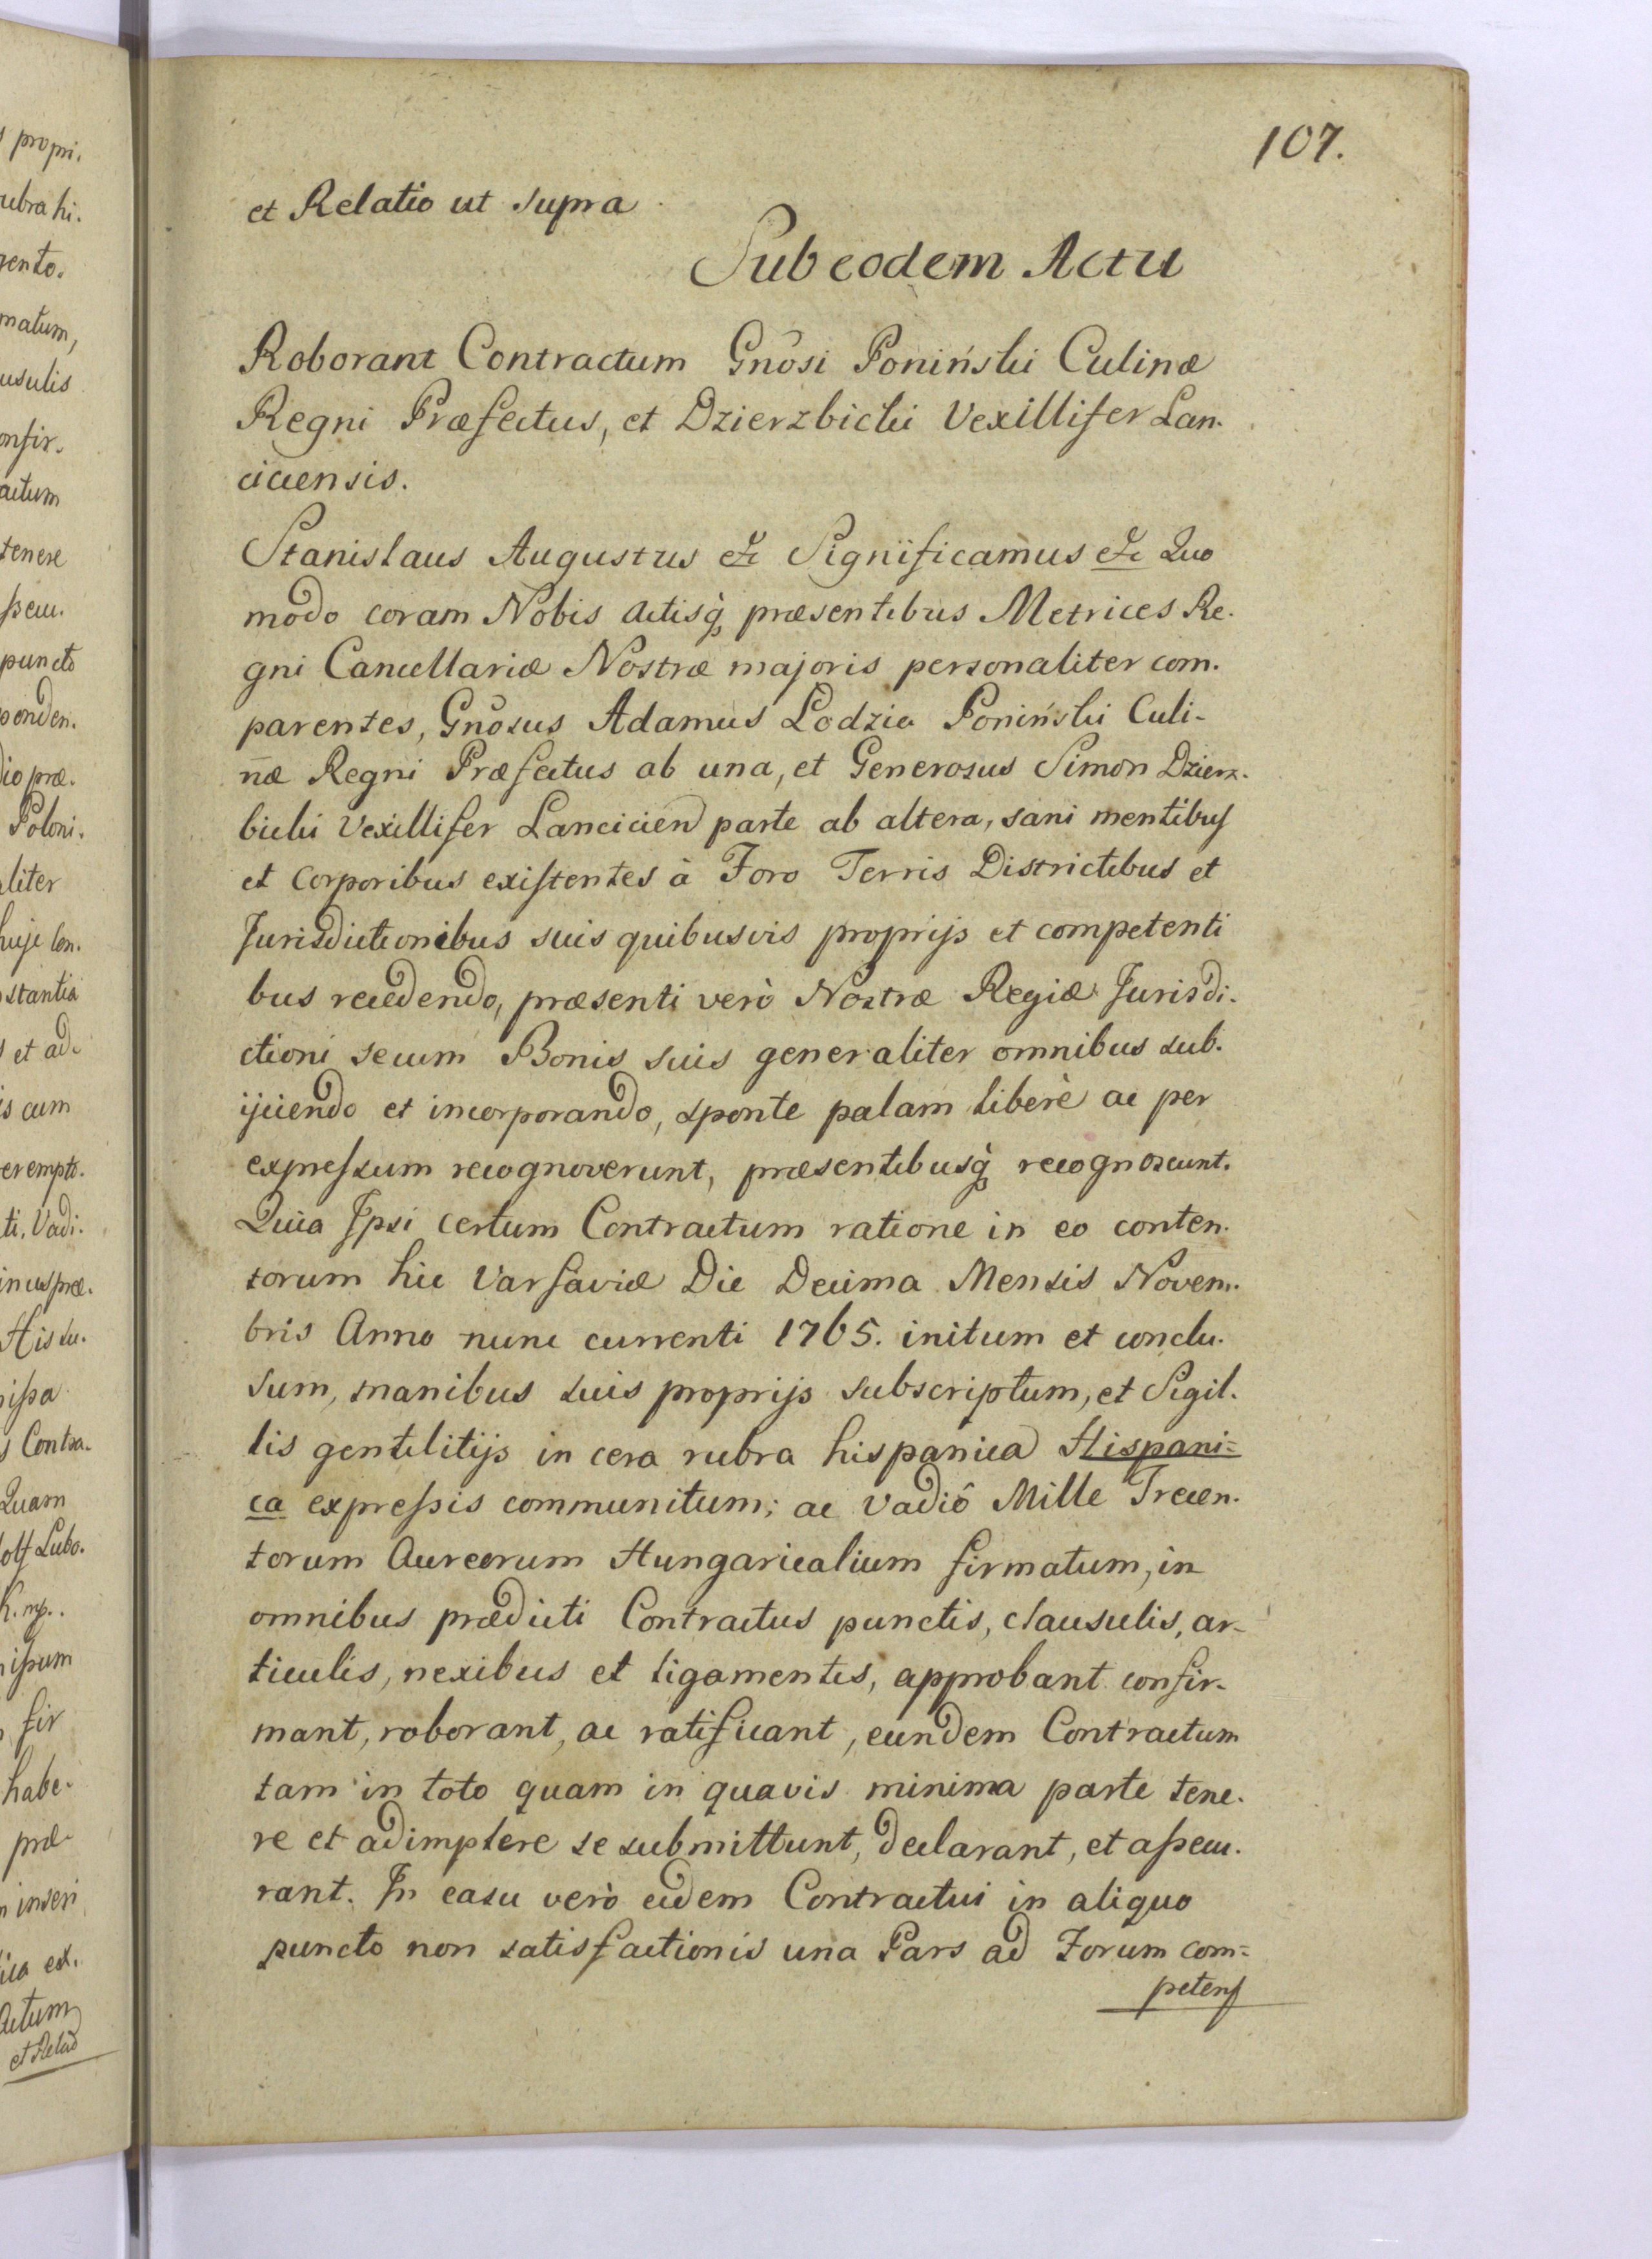 107.
et Relatio ut supra
Sub eodem Actu
Roborant Contractum Gnōsi Poniński Culinæ
Regni Præfectus, et Dzierzbicki Vexillifer Lan-
ciciensis.
Stanislaus Augustus &c Significamus &c Quo
modo coram Nobis Actisq₃ præsentibus Metrices Re-
gni Cancellariæ Nostræ majoris personaliter com-
parentes, Gnōsus Adamus Lodzia Poniński Culi-
næ Regni Præfectus ab una, et Generosus Simon Dzierz-
bicki Vexillifer Lancicien̄ parte ab altera, sani mentibus
et Corporibus existentes à Foro Terris Districtibus et
Jurisdictionibus suis quibusvis proprijs et competenti
bus recedendo, præsenti verò Nostræ Regiæ Jurisdi-
ctioni secum Bonis suis generaliter omnibus sub-
ijciendo et incorporando, sponte palam liberè ac per
expressum recognoverunt, præsentibusq₃ recognoscunt.
Quia Ipsi certum Contractum ratione in eo conten-
torum hic Varsaviæ Die Decima Mensis Novem-
bris Anno nunc currenti 1765. initum et conclu-
sum, manibus suis proprijs subscriptum, et Sigil-
lis gentilitijs in cera rubra hispanica Hispani=
ca expressis communitum; ac Vadiô Mille Trecen-
torum Aureorum Hungaricalium firmatum, in
omnibus prædicti Contractus punctis, clausulis, ar-
ticulis, nexibus et ligamentis, approbant confir-
mant, roborant, ac ratificant, eundem Contractum
tam in toto quam in quavis minima parte tene-
re et adimplere se submittunt, declarant, et assecu-
rant. In casu verò eidem Contractui in aliquo
puncto non satisfactionis una Pars ad Forum com=
petens